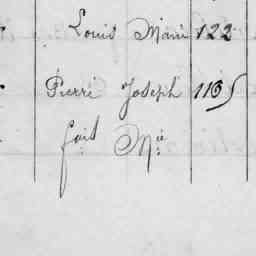 Louis Marie 122
Pierre Joseph 115
fait Mie